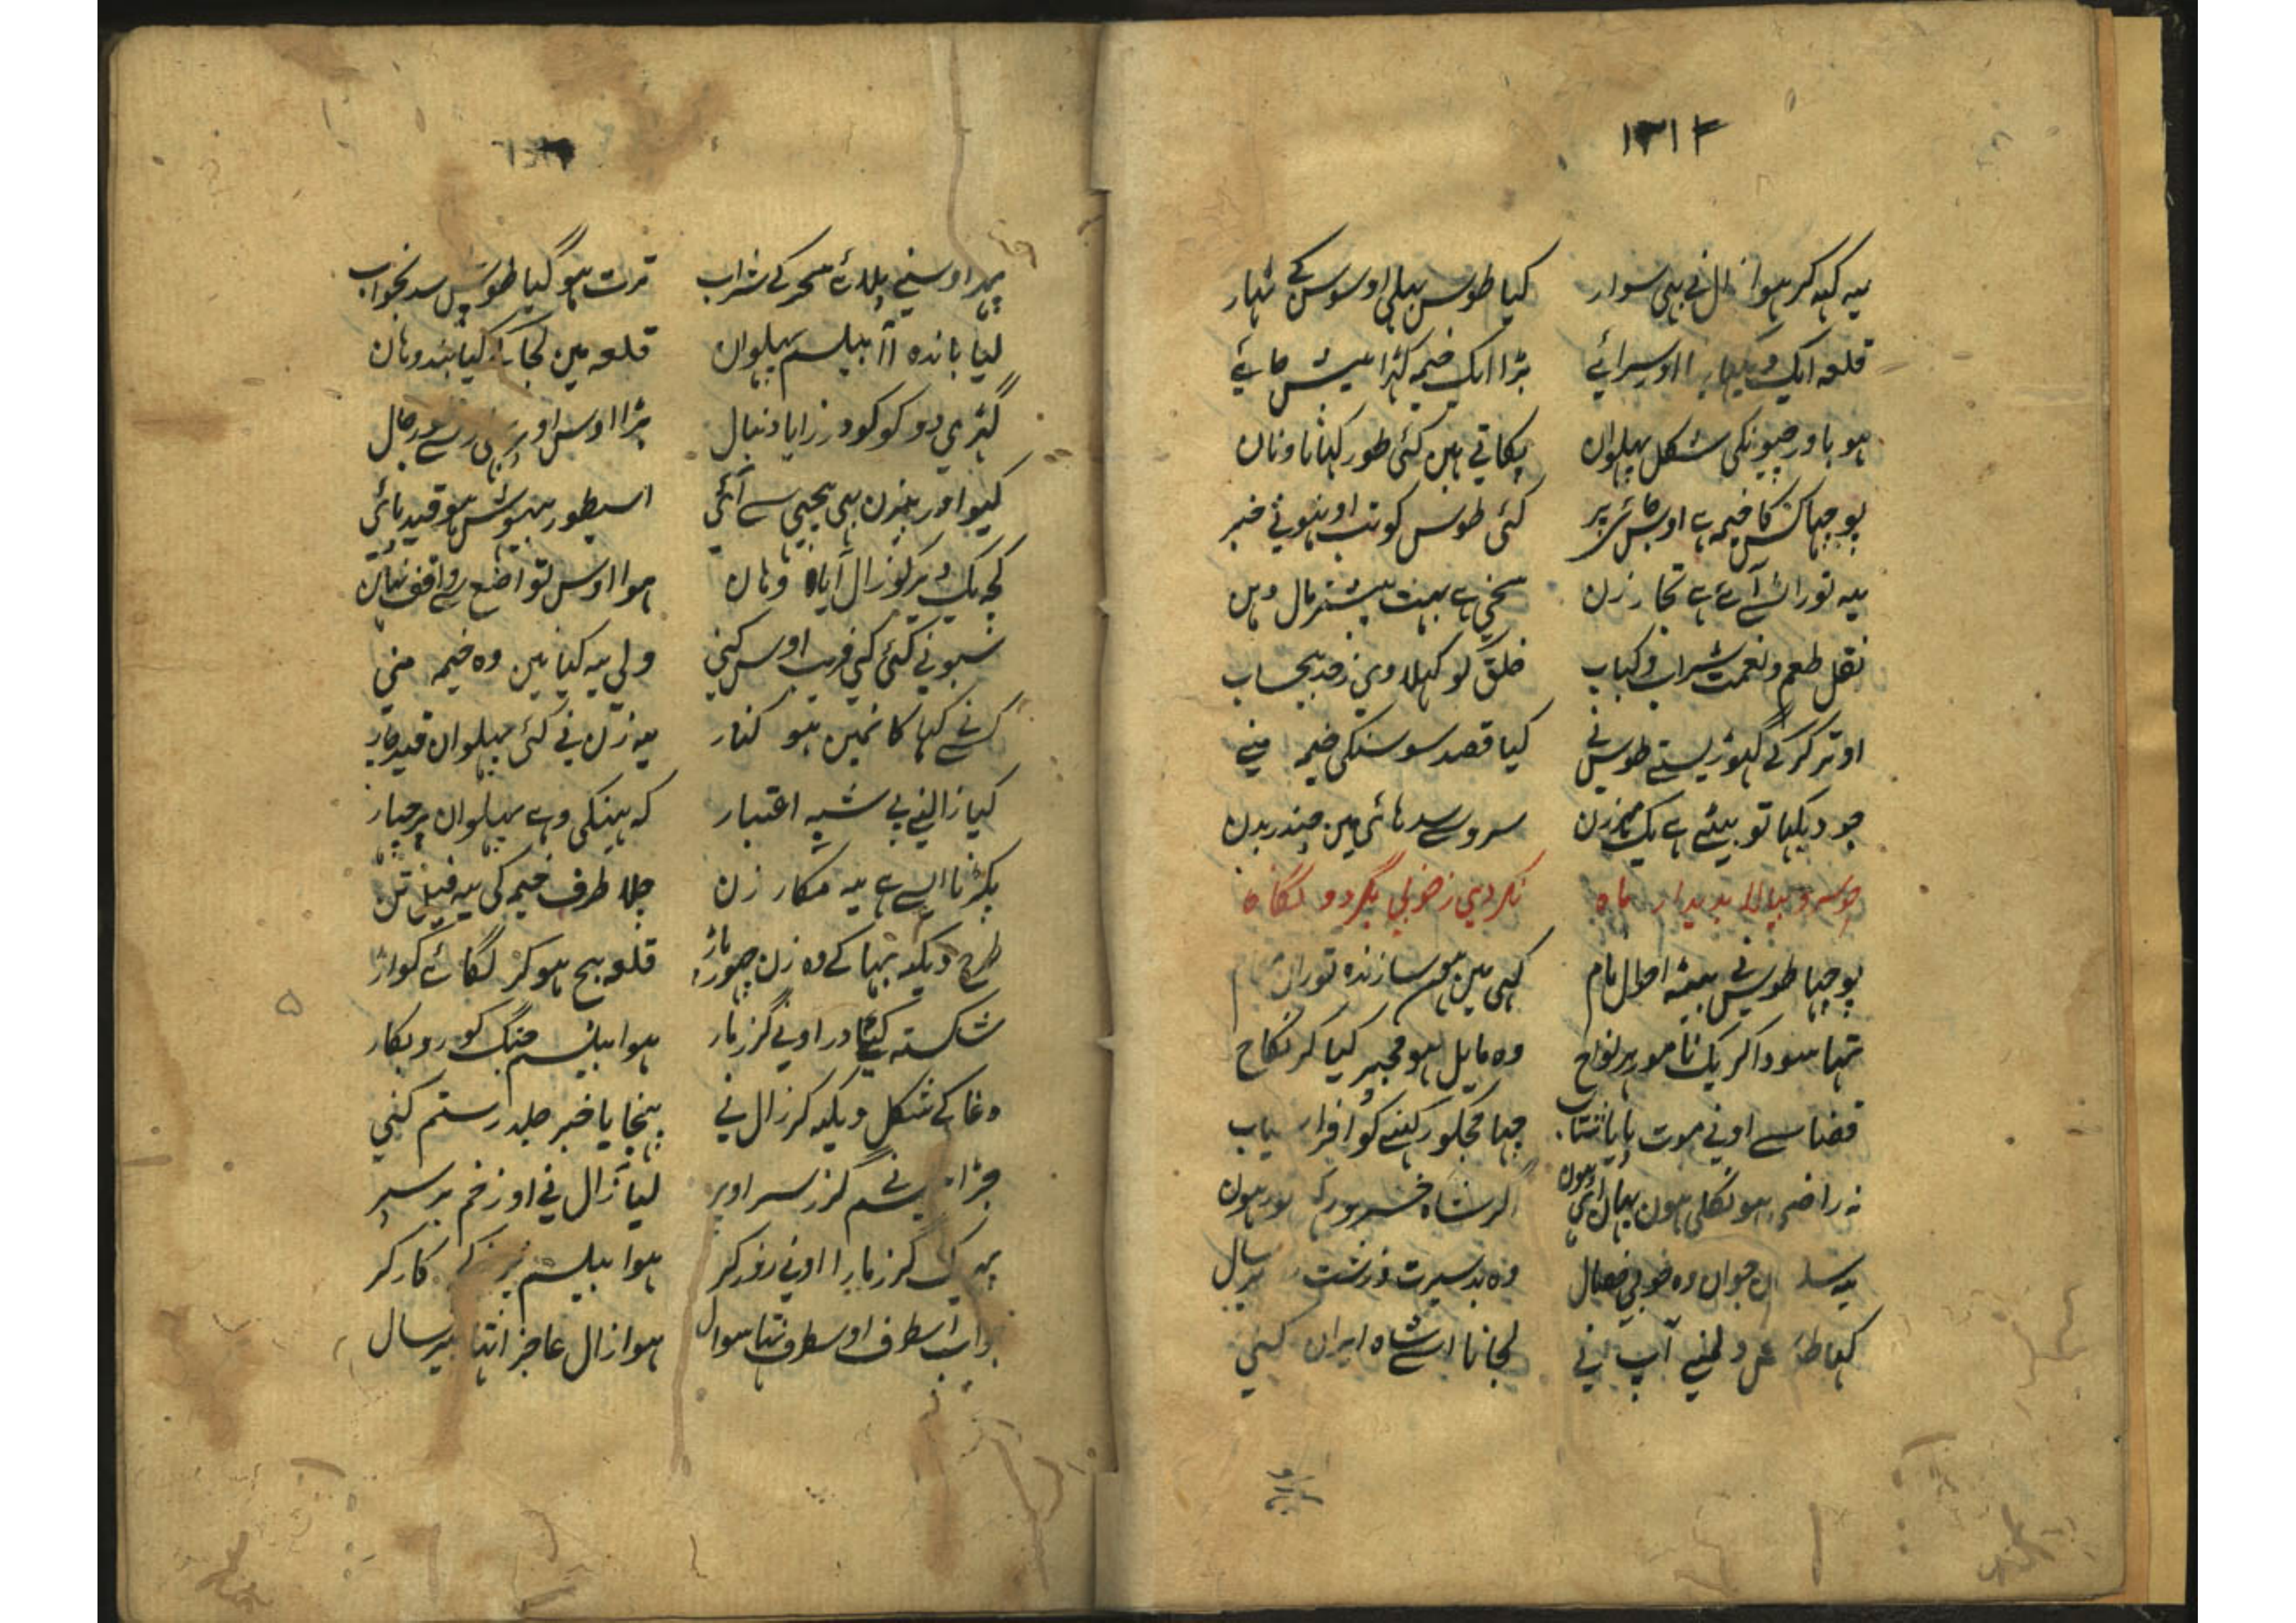 ۱۳۱۲
یہ کہہ کر ہوا زال نے بہی سوار کیا طوس پہلی اوسوس کے شہار
قلعہ ایک اوسرائے بڑا ایک خیمہ کہڑا پیش جائے
ہو باورچیونکی شکل پہلوان پکاتے ہین کئی طور کہانا و نان
پوچہا کس کا خیمہ ہے اوس جائی پر کئی طوس کو تب اونہو نے خبر
یہ توران سے آئے ہے تجار زن سخی ہے بہت بیشتر مال و ہن
نقل طعم و نعمت شراب و کباب خلق کو کہلاوی زحد بیحساب
اوتر کر کے گہوڑیستے طوس نے کیا قصد سوسنکی خیمہ منے
جو دیکہا تو بیٹہے ہے یک زن سرو سے سدہائی مین چندر بدن
چوسرو ببالا بدیدار ماہ نکردی زخوبی بگردو نگاہ
پوچہا طوس نے بیٹہ احوال مام کہی مین ہون سازندہ توران
تہا سوداگر یک نامور ہر نواح وہ مایل ہو مجہپر کیا کر نکاح
قضا سے اونے موت پایا شتاب چہا مجکو رکہنے کو افراسیاب
نہ راضی ہو نکلی ہون یہان آئی ہون اگر شاہ خسرو ہون
یہ جوان وہ خوبی خصال وہ بد سیرت و زشت پیر سال
کہا طوس دلمنے آپ نے لجانا اسے شاہ ایران کنے
پہر اوسنے پلائے سحر کے شراب ترت ہو گیا طوس بخواب
لیا باندہ آ آ پیلسم پہلوان قلعہ مین لجا کر کیا بند وہان
گہڑی دو کو گودرز آیا دنبال پڑا اوس
گیو اور بیژن بہی پیچہی سے آئی اسیطور بیہوش ہو قید پائی
کچہ یک دیر کو زال آیا وہان ہوا اوس تواضع سے واقف نہان
سبو نے کئی کی فریب اوس کنی ولی یہ گیا نین وہ خیمہ منی
کرنے کہا کا نمین ہو کنار یہ زن نے کئی پہلوان قید چار
کیا زالنے بے شبہ اعتبار کہ ہینگی وہے پہلوان چار
پکڑنا اسے ہے یہ مکار زن چلا طرف خیمہ کی یہ فیل تن
طرح دیکہ بہاگے وہ زن چہوڑ باڑ قلعہ بیچ ہو کر لگائے کواڑ
شکستہ کیتا در اونے گرز مار ہوا پیلسم جنگ کو روبکار
دغا کے شکل دیکہ کر زال نے پنچایا خبر جلد رستم کنی
جڑا پیلسم نے گرز سر اوپر لیا زال نے او زخم بر سپر
پہر یک گرز مارا اونے زور کر ہوا پیلسم پر نہ کارگر
جواب اسطرف اوسطرف تہا سوال ہوا زال عاجز اتہا پیر سال